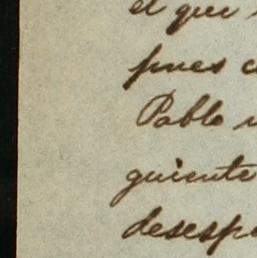 el que
pues c
Pablo
guiente
desesp